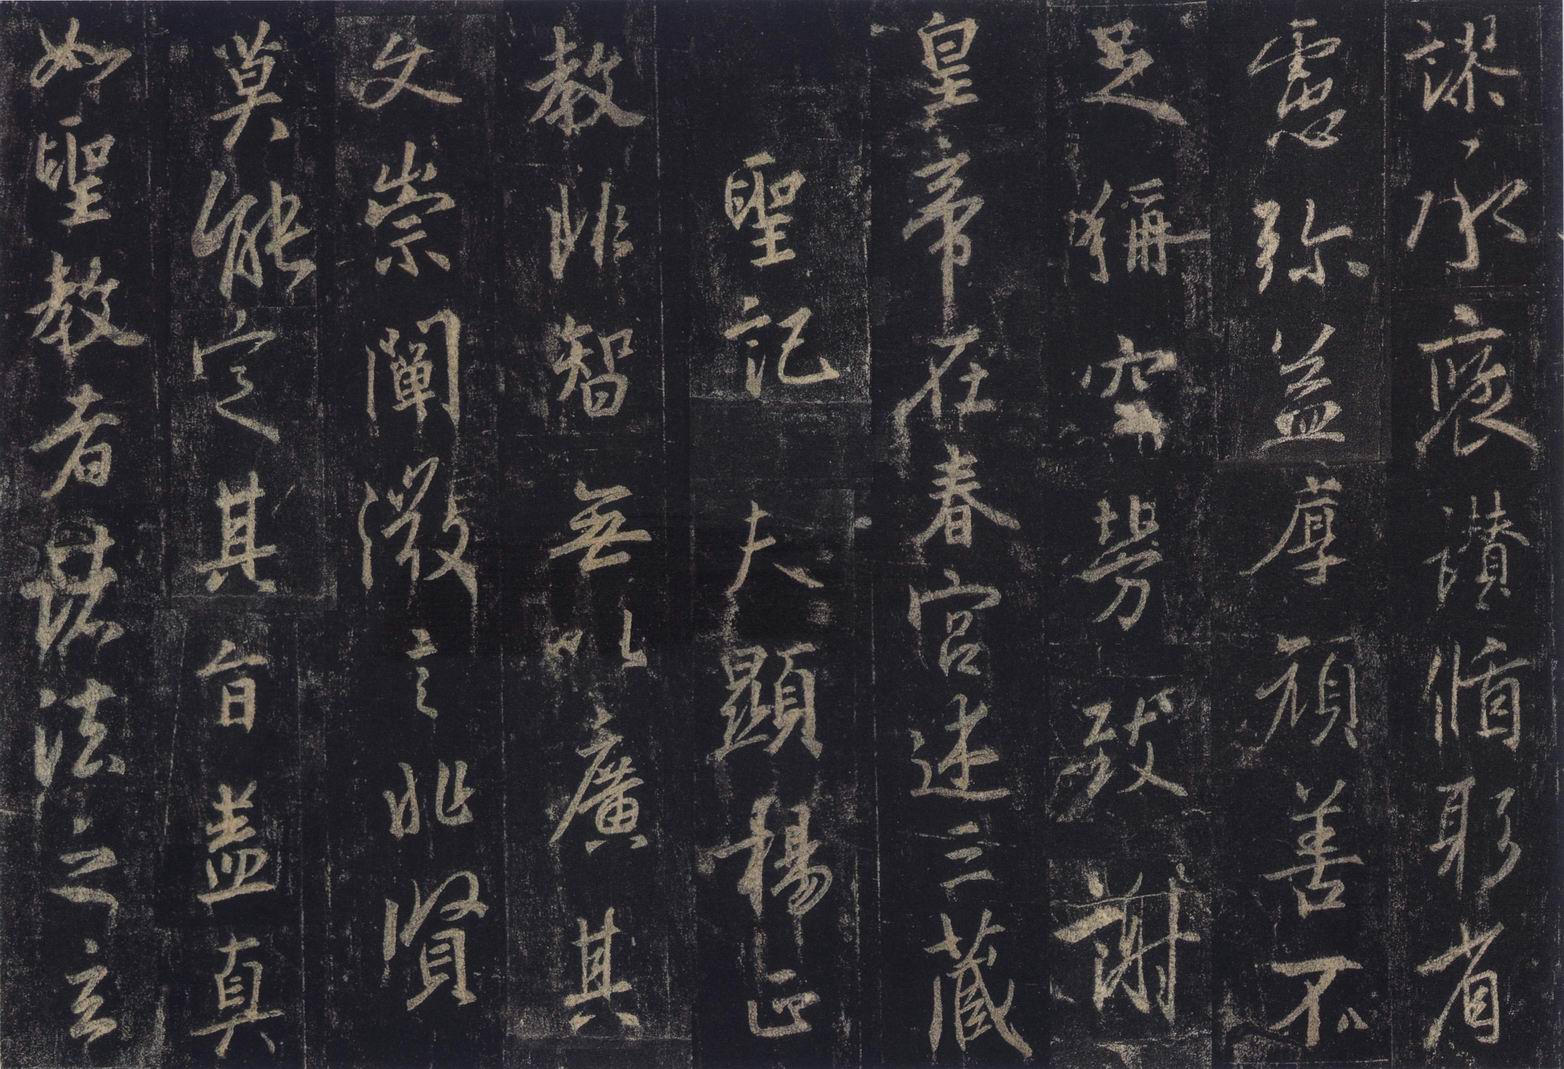 謬承褒讚循躬省
慮弥益厚顏善不
足稱空勞致謝
皇帝在春宮述三藏
聖記 夫顯揚正
教非智無以廣其
文崇闡微言非賢
莫能定其旨盖真
如聖教者諸法之玄